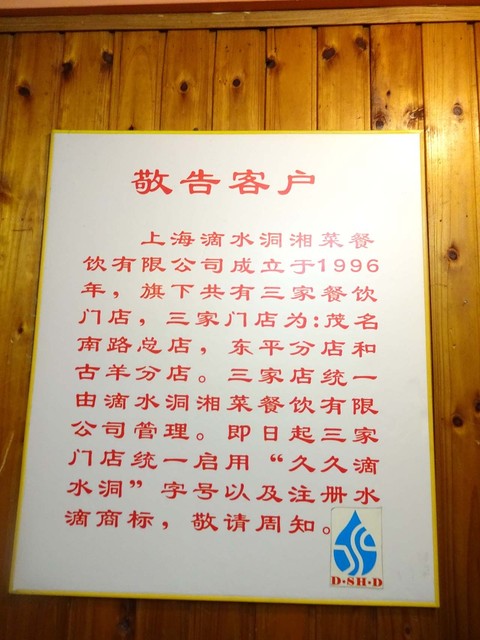 敬告客户
上海滴水洞湘菜餐
饮有限公司成立于1996
年，旗下共有三家餐饮
门店，三家门店为:茂名
南路总店，东平分店和
古羊分店。三家店统一
由滴水洞湘菜餐饮有限
公司管理。即日起三家
门店统一启用“久久滴
水洞”字号以及注册水
滴商标，敬请周知。
D·SH·D